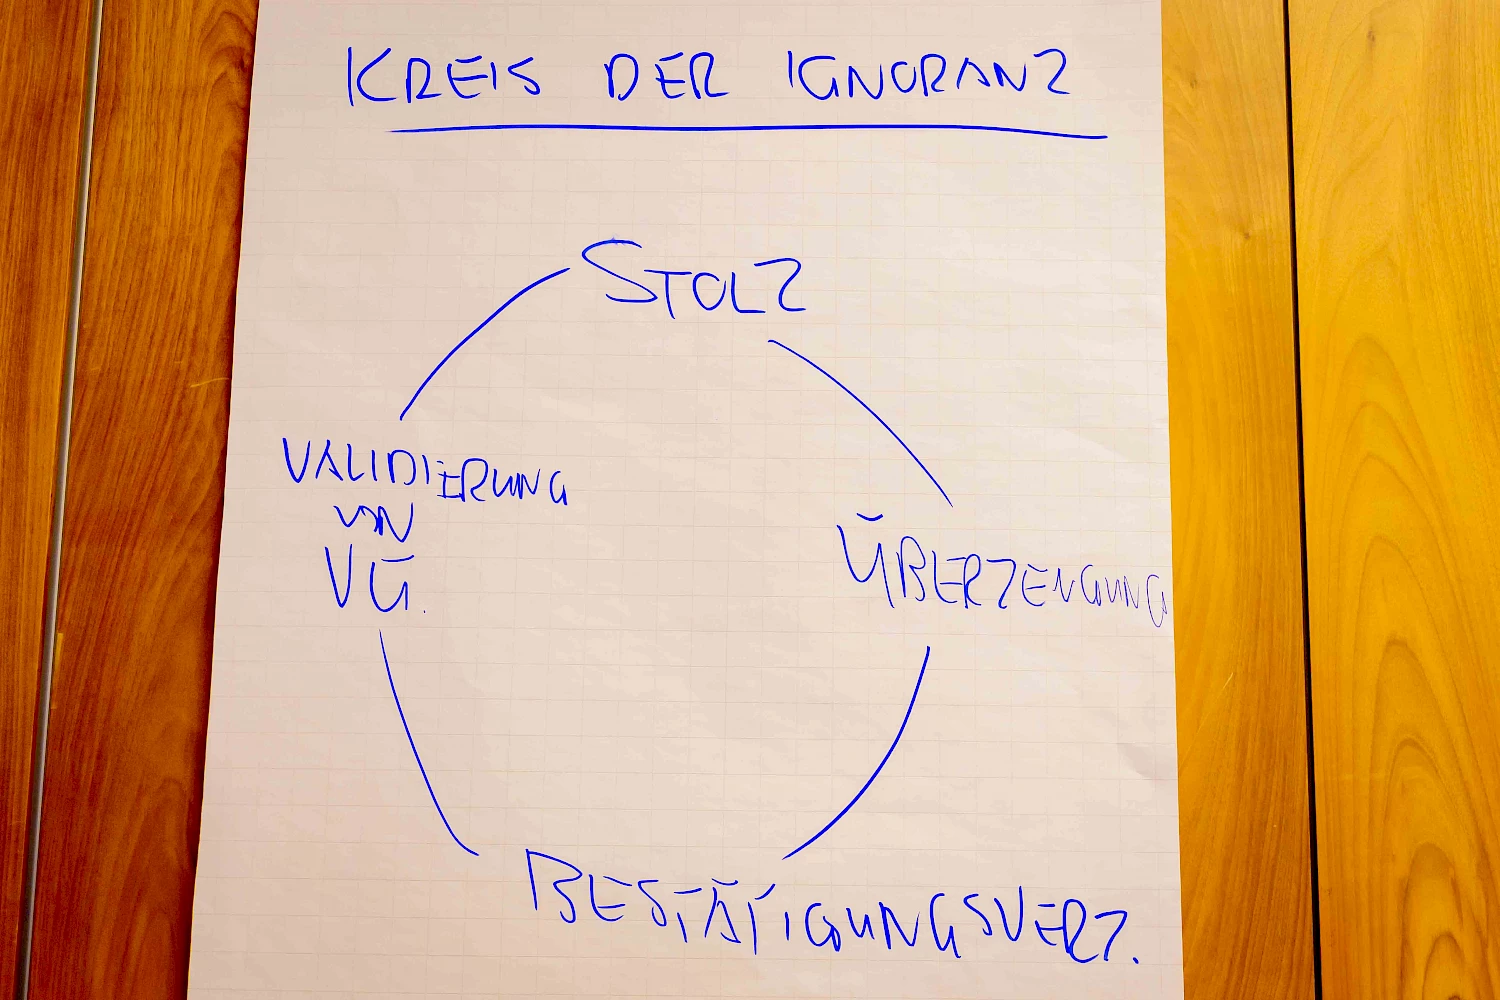 KREIS DER IGNORANZ
STOLZ
VALIDIERUNG
VON
VG.
ÜBERZEUGUNG
BESTÄTIGUNGSVERZ.